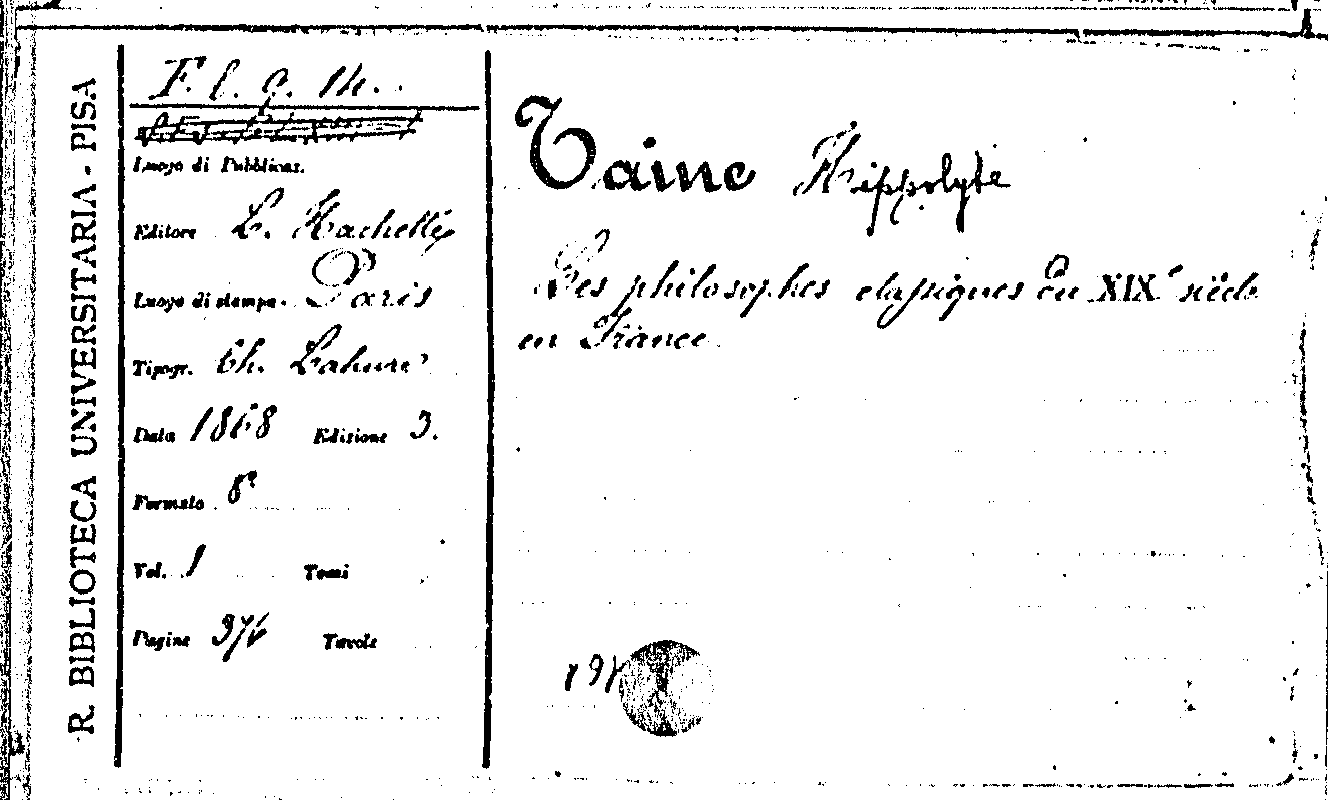 R. BIBLIOTECA UNIVERSITARIA - PISA
F. l. 9. 14.
Luogo di Pubblicas.
Editore L. Hachette
Luogo di stampa. Paris
Tipogr. Ch. Lahure
Data 1868 Edizione 3.
Formato 8°
Vol. 1 Tomi
Pagine 376 Tavole
Taine Hippolyte
Les philosophes classiques du XIXe siècle
en France.